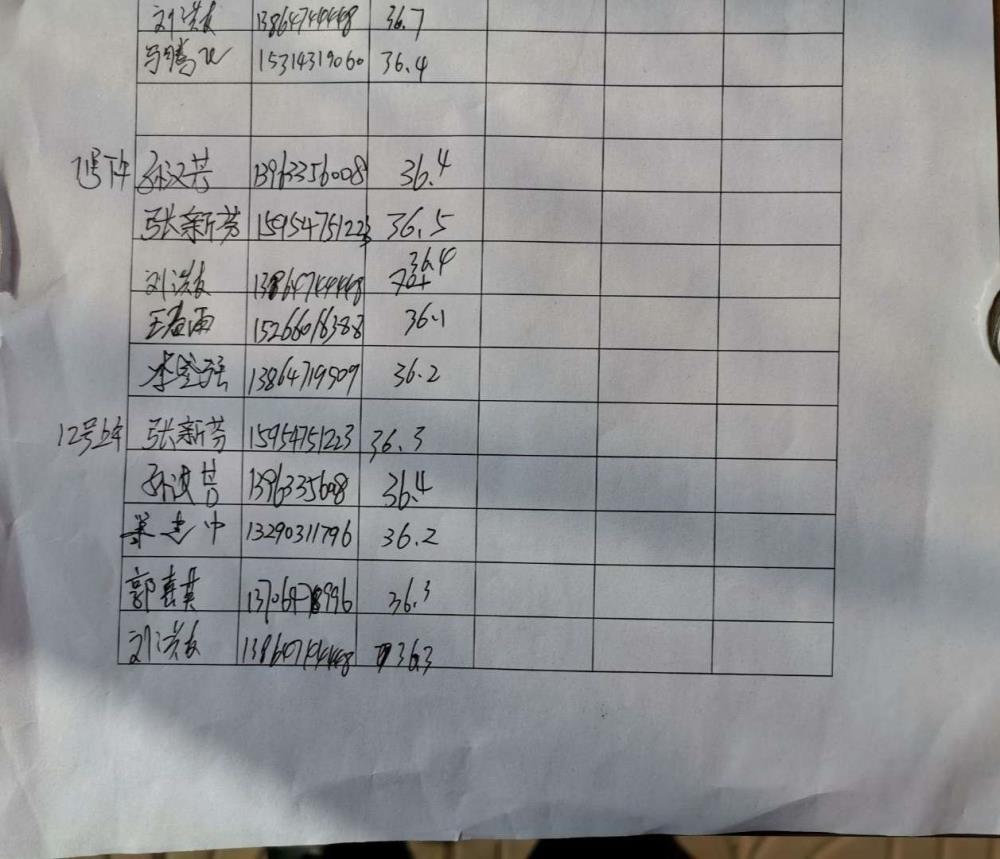 刘洪友 13864744448 36.7
马腾飞 15314319060 36.4
11号下午 孙汉芳 13963356008 36.4
张新芬 15954751223 36.5
刘洪友 13864744448 36.4
王春雨 15266018388 36.1
李宝强 13864719509 36.2
12号上午 张新芬 15954751223 36.3
孙汉芳 1396335608 36.4
中 13290311796 36.2
郭喜英 36.3
刘洪友 13864744448 36.3